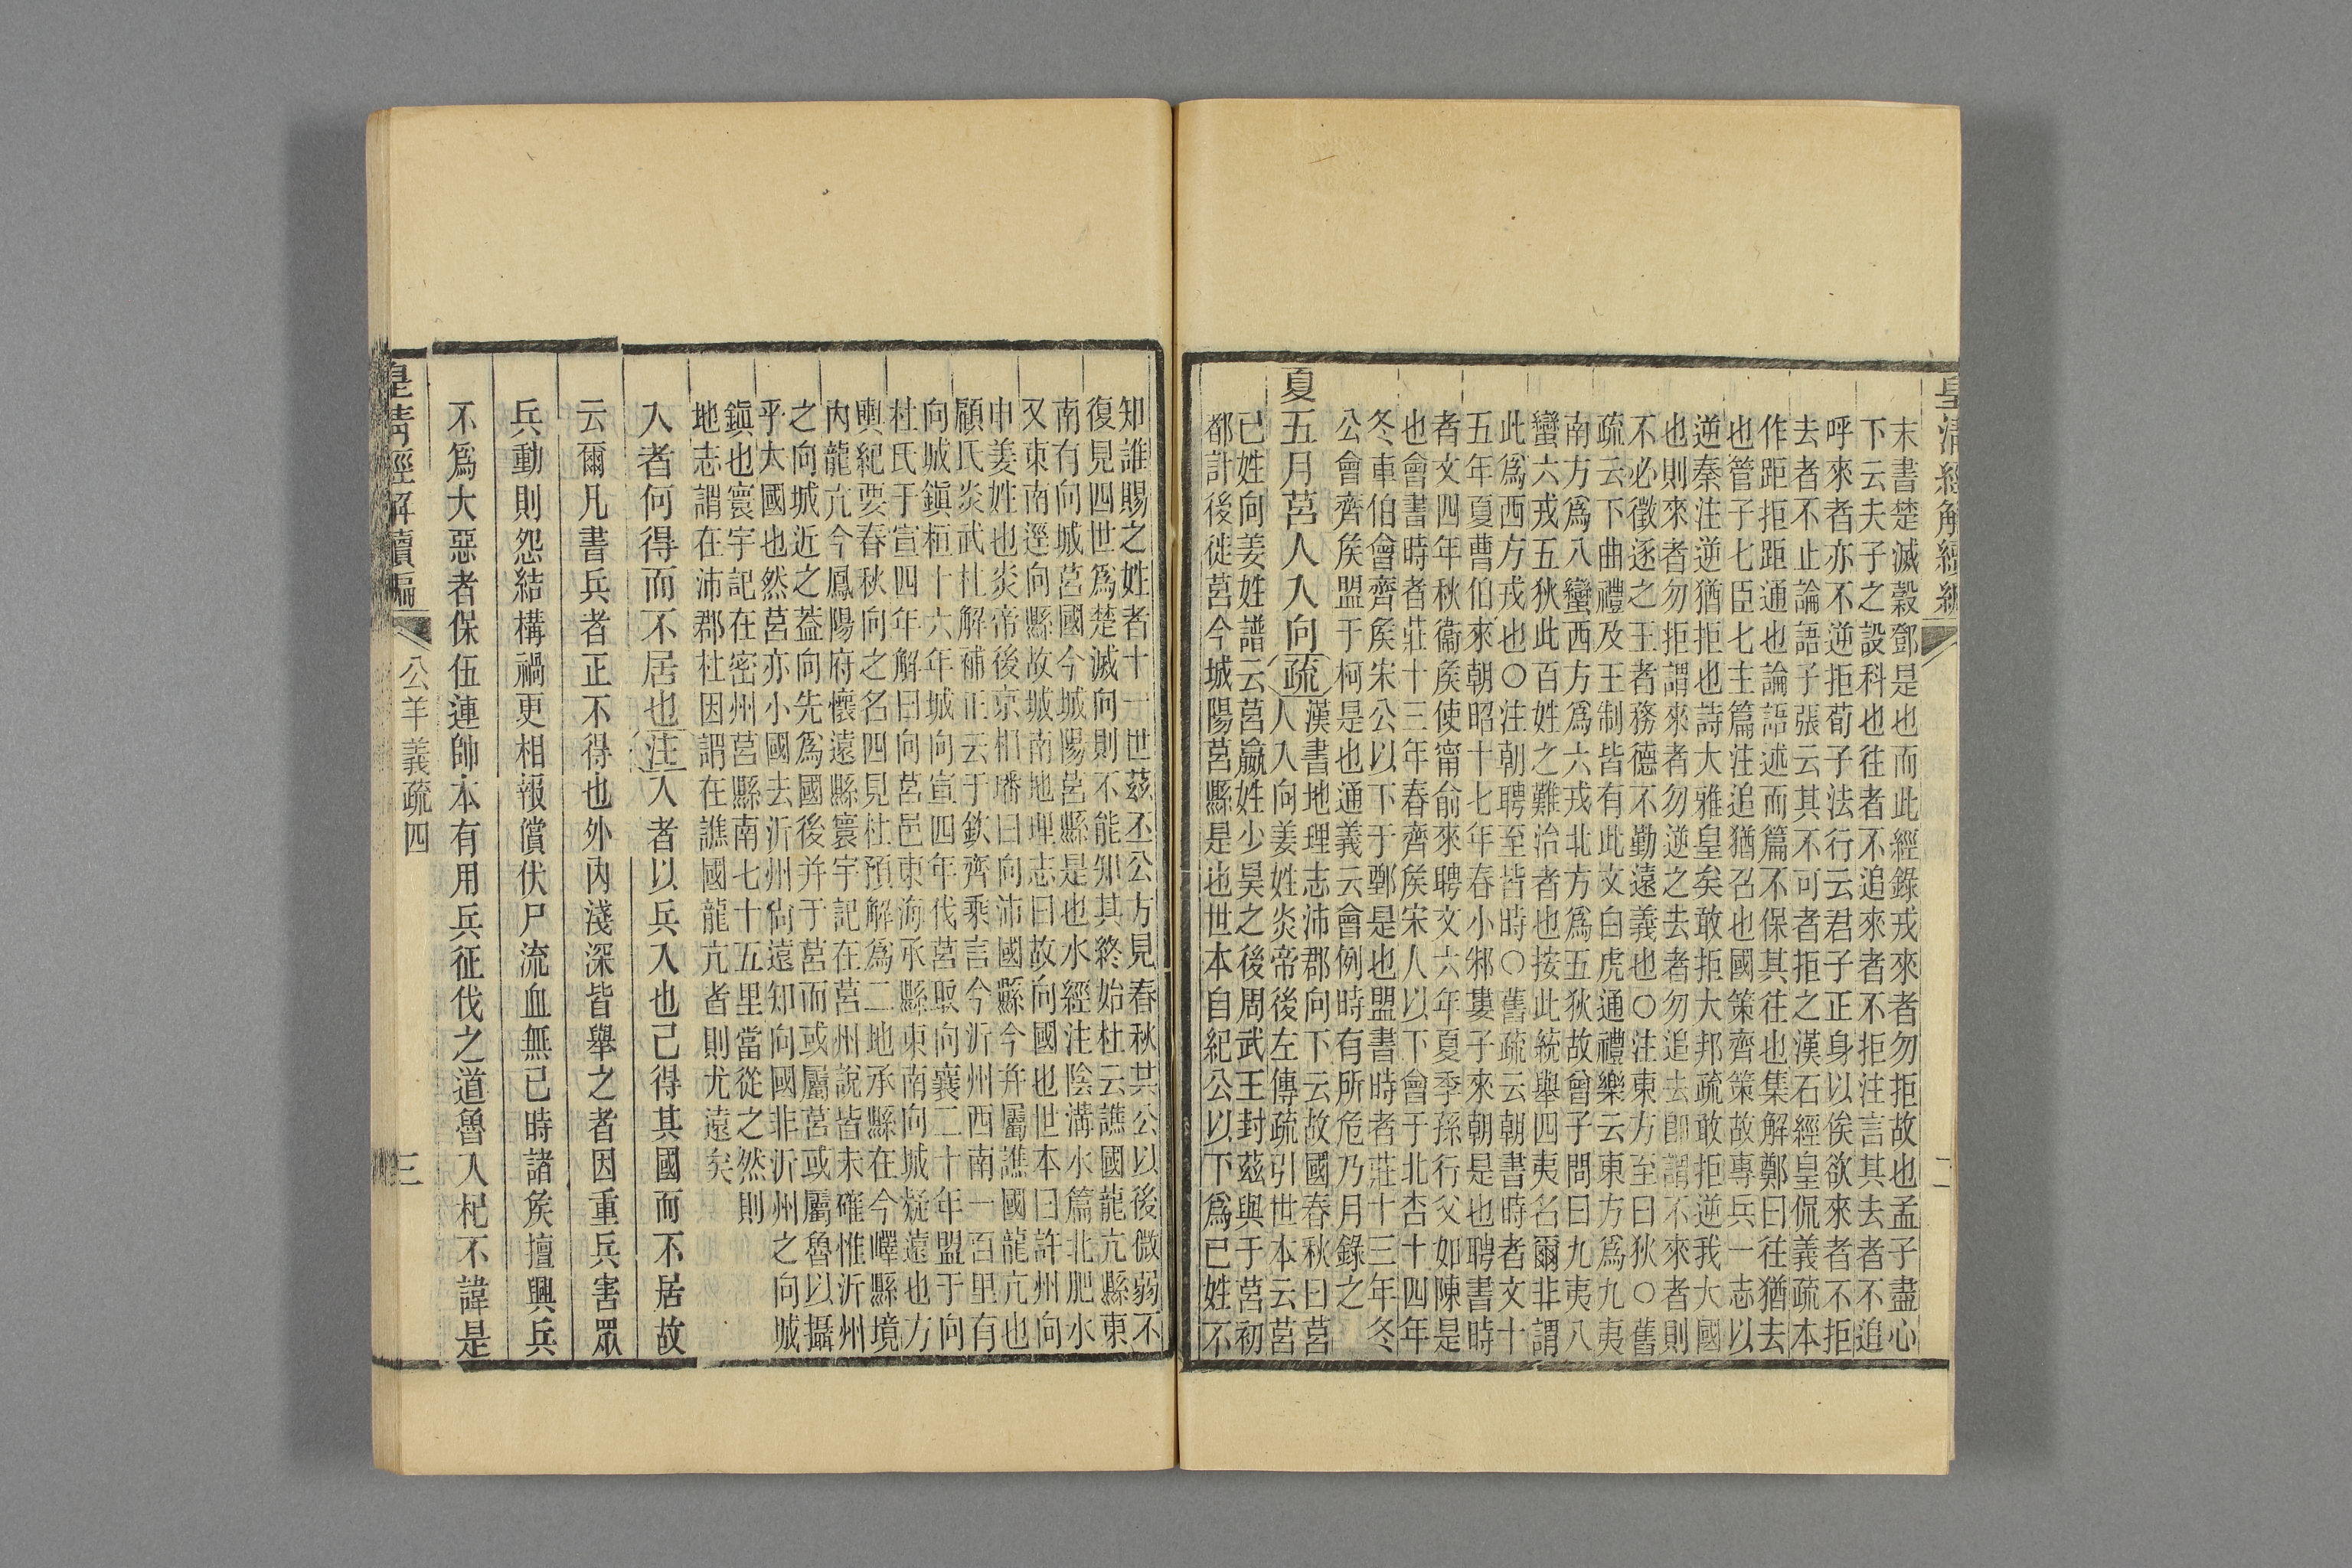 皇清經解續編
末書楚滅穀鄧是也而此經錄戎來者勿拒故也孟子盡心
下云夫子之設科也往者不追來者不拒注言其去者不追
呼來者亦不逆拒荀子法行云君子正身以俟欲來者不拒
去者不止論語子張云其不可者拒之漢石經皇侃義疏本
作距拒距通也論語述而篇不保其往也集解鄭曰往猶去
也管子七臣七主篇注追猶召也國策齊策故專兵一志以
逆秦注逆猶拒也詩大雅皇矣敢拒大邦疏敢拒逆我大國
也則來者勿拒謂來者勿逆之去者勿追去卽謂不來者則
不必徵逐之王者務德不勤遠義也○注東方至曰狄○舊
疏云下曲禮及王制皆有此文白虎通禮樂云東方爲九夷
南方爲八蠻西方爲六戎北方爲五狄故曾子問曰九夷八
蠻六戎五狄此百姓之難治者也按此統舉四夷名爾非謂
此爲西方戎也○注朝聘至皆時○舊疏云朝書時者文十
五年夏曹伯來朝昭十七年春小邾婁子來朝是也聘書時
者文四年秋衞矦使甯俞來聘文六年夏季孫行父如陳是
也會書時者莊十三年春齊矦宋人以下會于北杏十四年
冬車伯會齊矦宋公以下于鄄是也盟書時者莊十三年冬
公會齊矦盟于柯是也通義云會例時有所危乃月錄之
夏五月莒人入向疏漢書地理志沛郡向下云故國春秋曰莒
人入向姜姓炎帝後左傳疏引世本云莒
已姓向姜姓譜云莒嬴姓少昊之後周武王封茲輿于莒初
都計後徙莒今城陽莒縣是也世本自紀公以下爲已姓不
知誰賜之姓者十一世茲丕公方見春秋其公以後微弱不
復見四世爲楚滅向則不能知其終始杜云譙國龍亢縣東
南有向城莒國今城陽莒縣是也水經注陰溝水篇北肥水
又東南逕向縣故城南地理志曰故向國也世本曰許州向
申姜姓也炎帝後京相璠曰向沛國縣今并屬譙國龍亢也
顧氏炎武杜解補正云于欽齊乘言今沂州西南一百里有
向城鎭桓十六年城向宣四年伐莒取向襄二十年盟于向
杜氏于宣四年解曰向莒邑東海承縣東南向城疑遠也方
輿紀要春秋向之名四見杜預解爲二地承縣在今嶧縣境
內龍亢今鳳陽府懷遠縣寰宇記在莒州說皆未確惟沂州
之向城近之葢向先爲國後并于莒而或屬莒或屬魯以攝
乎大國也然莒亦小國去沂州尙遠知向國非沂州之向城
鎭也寰宇記在密州莒縣南七十五里當從之然則
地志謂在沛郡杜因謂在譙國龍亢者則尤遠矣
入者何得而不居也注入者以兵入也已得其國而不居故
云爾凡書兵者正不得也外內淺深皆舉之者因重兵害眾
兵動則怨結構禍更相報償伏尸流血無已時諸矦擅興兵
不爲大惡者保伍連帥本有用兵征伐之道魯入杞不諱是
皇清經解續編 公羊義疏四 三